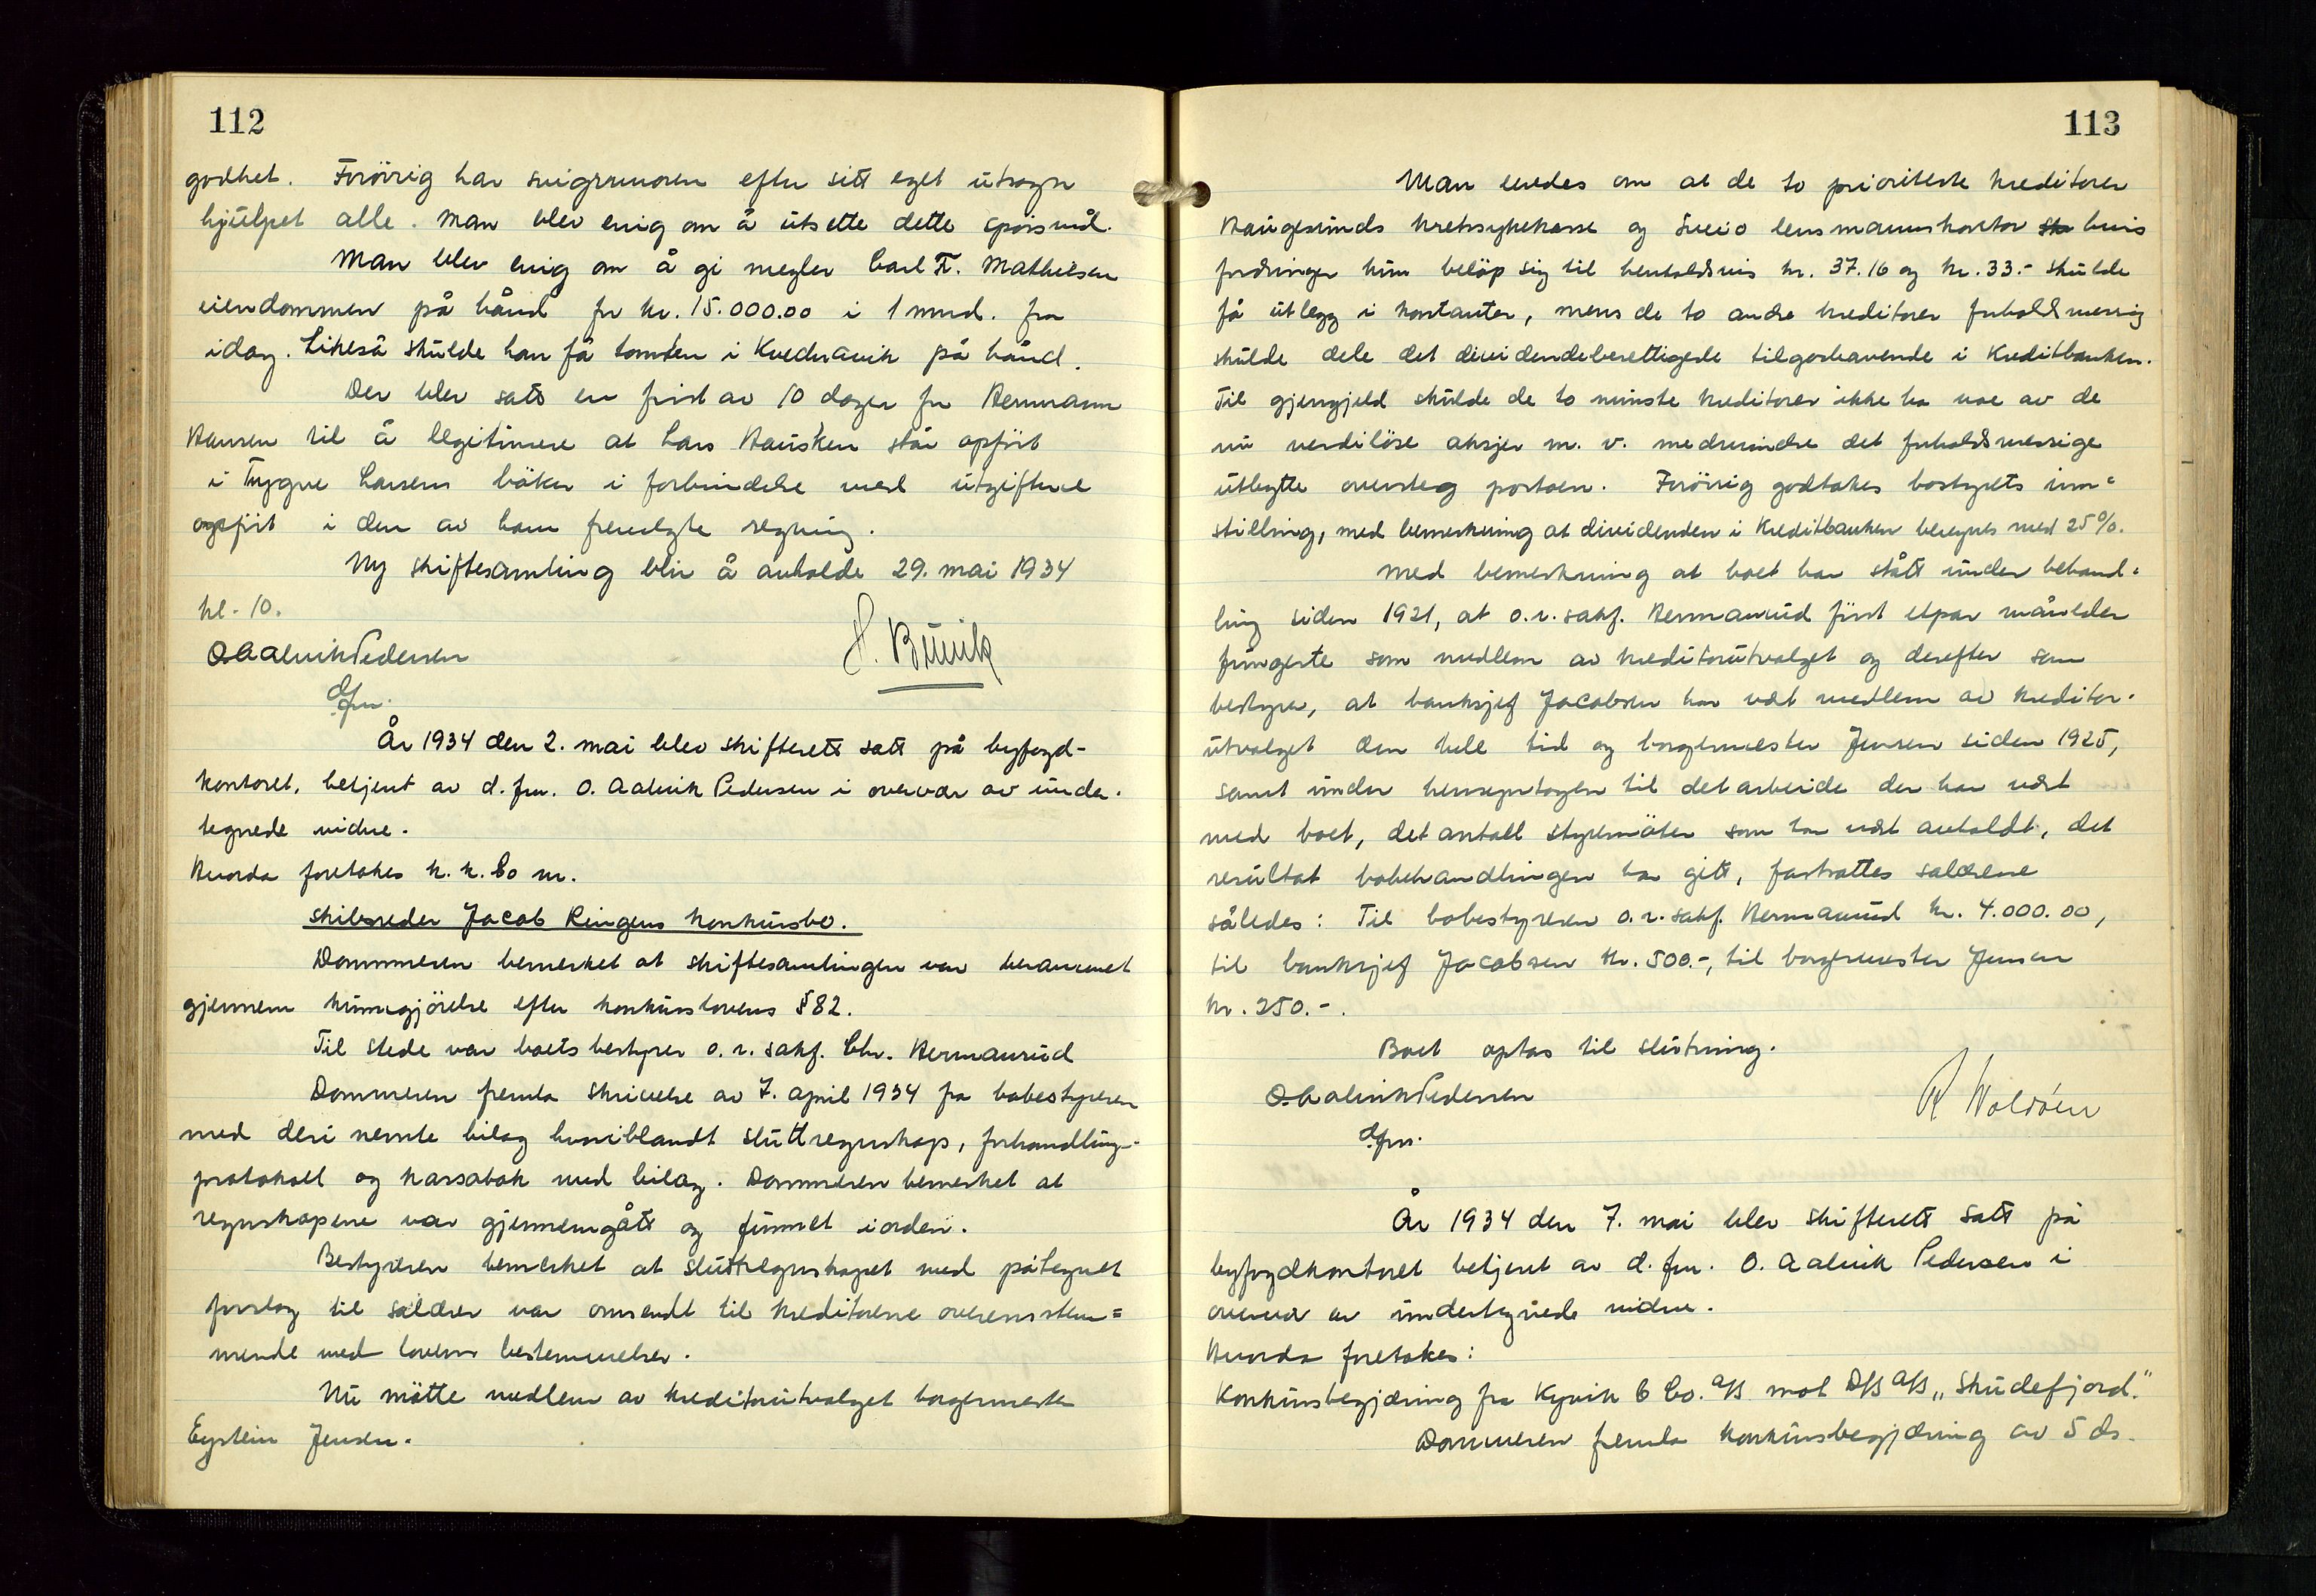 112
godhet. Forövrig har svigermoren efter sitt eget utsagn
hjulpet alle. Man blev enig om å utsette dette spörsmål.
Man blev enig om å gi megler Carl Fr. Mathiesen
eiendommen på hånd for kr. 15.000.00 i 1 mnd. fra
idag. Likeså skulde han få tomten i Kvednavik på hånd.
Der blev satt en frist av 10 dager for Hermann
Hansen til å legitimere at Lars Hausken står opfört
i Trygve Larsens böker i forbindelse med utgiftene
opfört i den av ham fremlagte regning.
Ny skiftesamling blir å avholde 29. mai 1934
kl. 10.
O. Aalvik Pedersen
dfm.
År 1934 den 2. mai blev skifterett satt på byfogd-
kontoret, betjent av d. fm. O. Aalvik Pedersen i overvær av under-
tegnede vidne.
Hvorda foretokes k. k. 60 nr.
Skibsreder Jacob Ringens konkursbo.
Dommeren bemerket at skiftesamlingen var berammet
gjennem kunngjörelse efter konkurslovens § 82.
Til stede var boets bestyrer o. r. sakf. Chr. Hermansrud
Dommeren fremla skrivelse av 7. april 1934 fra bobestyreren
med deri nevnte bilag hvoriblandt sluttregnskap, forhandlings-
protokoll og kassabok med bilag. Dommeren bemerket at
regnskapene var gjennemgått og funnet iorden.
Bestyreren bemerket at sluttregnskapet med påtegnet
forslag til salærer var omsendt til kreditorene overensstem=
mende med lovens bestemmelser.
Nu mötte medlem av kreditorutvalget borgermester
Eystein Jensen.
H. Buvik
113
Man enedes om at de to prioriterte kreditorer
Haugesunds kretssykekasse og Sveio lensmannskontor ska hvis
fordringer kun belöp sig til henholdsvis kr. 37.16 og kr. 33.- skulde
få utlegg i kontanter, mens de to andre kreditorer forholdsmessig
skulde dele det dividendeberettigede tilgodehavende i Kreditbanken.
Til gjengjeld skulde de to minste kreditorer ikke ha noe av de
nu verdilöse aksjer m. v. medmindre det forholdsmessige
utbytte oversteg portoen. Forövrig godtakes bostyrets inn=
stilling, med bemerkning at dividenden i Kreditbanken beregnes med 25%.
Med bemerkning at boet har stått under behand=
ling siden 1921, at o.r. sakf. Hermansrud först etpar måneder
fungerte som medlem av kreditorutvalget og derefter som
bestyrer, at banksjef Jacobsen har vært medlem av kreditor-
utvalget den hele tid og borgermester Jensen siden 1925,
samt under hensyntagen til det arbeide der har vært
med boet, det antall styremöter som har vært avholdt, det
resultat bobehandlingen har gitt, fastsattes salærene
således: Til bobestyreren o.r. sakf. Hermansrud kr. 4.000.00,
til banksjef Jacobsen kr. 500.-, til borgermester Jensen
kr. 250.-.
Boet optas til slutning.
O. Aalvik Pedersen
dfm.
År 1934 den 7. mai blev skifterett satt på
byfogdkontoret betjent av d. fm. O. Aalvik Pedersen i
overvær av undertegnede vidne.
Hvorda foretokes:
Konkursbegjæring fra Kyvik & Co. A/S mot D/S A/S „Skudefjord".
Dommeren fremla konkursbegjæring av 5 ds.